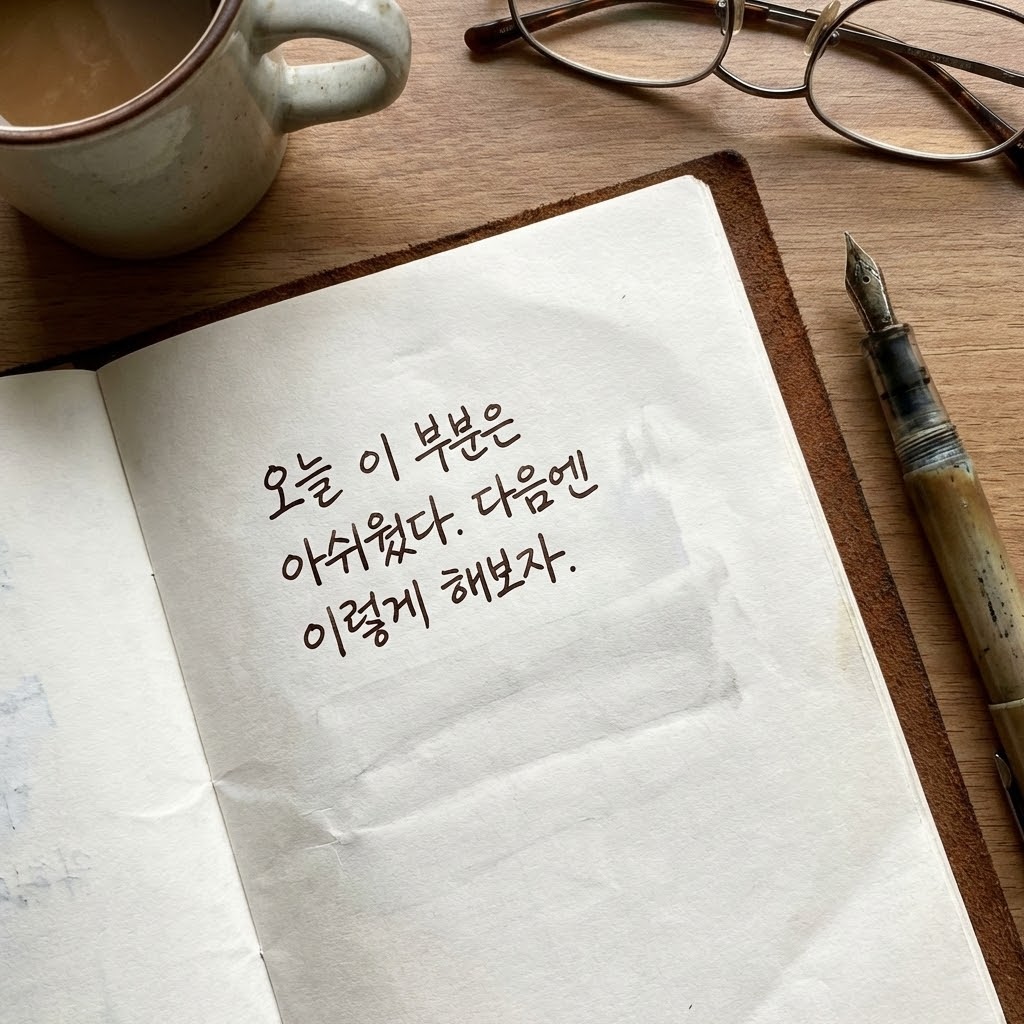 오늘 이 부분은
아쉬웠다. 다음엔
이렇게 해보자.